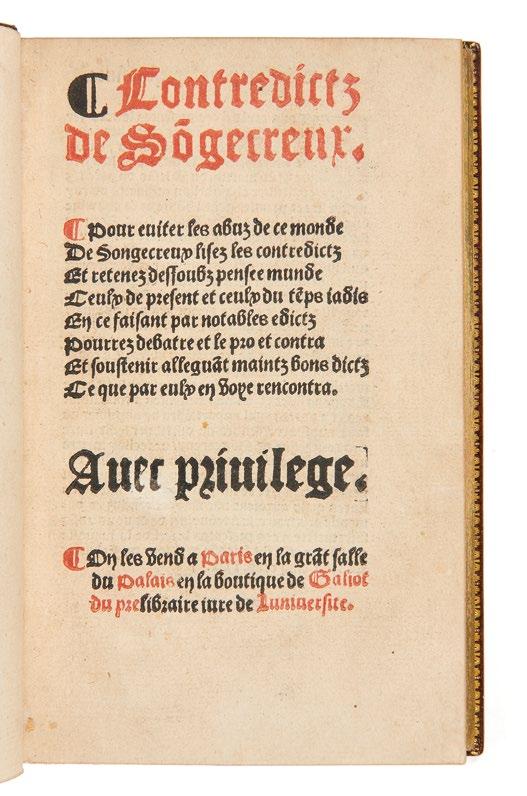 ¶ Contredictz
de Sõgecreux.
¶ Pour euiter les abuz de ce monde
De Songecreux lisez les contredictz
Et retenez dessoubz pensee munde
Ceulx de present et ceulx du tẽps iadis
En ce faisant par notables edictz
Pourrez debatre et le pro et contra
Et soustenir alleguãt maintz bons dictz
Ce que par eulx en voye rencontra.
Auec priuilege.
¶ On les vend a Paris en la grãt salle
du Palais en la boutique de Galiot
du pre libraire iure de Luniuersite.